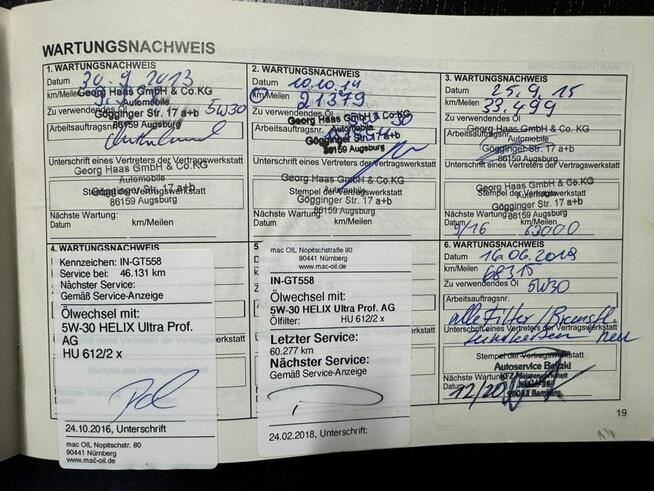 WARTUNGSNACHWEIS
1. WARTUNGSNACHWEIS
Datum 30.9.2013
km/Meilen
Georg Haas GmbH & Co.KG
Automobile
Gögginger Str. 17 a+b
86159 Augsburg
Zu verwendendes Öl 5W30
Arbeitsauftragsnr.
Unterschrift eines Vertreters der Vertragswerkstatt
Georg Haas GmbH & Co.KG
Automobile
Gögginger Str. 17 a+b
Stempel der Vertragswerkstatt
86159 Augsburg
Nächste Wartung:
Datum km/Meilen
2. WARTUNGSNACHWEIS
Datum 10.10.14
km/Meilen 21379
Georg Haas GmbH & Co.KG
Automobile
Gögginger Str. 17 a+b
86159 Augsburg
Unterschrift eines Vertreters der Vertragswerkstatt
Georg Haas GmbH & Co.KG
Automobile
Stempel der Vertragswerkstatt
Gögginger Str. 17 a+b
86159 Augsburg
Nächste Wartung:
Datum km/Meilen
3. WARTUNGSNACHWEIS
Datum 25.9.15
km/Meilen 33.499
Zu verwendendes Öl
Arbeitsauftragsnr.
Georg Haas GmbH & Co. KG
Automobile
Gögginger Str. 17 a+b
86159 Augsburg
Unterschrift eines Vertreters der Vertragswerkstatt
Georg Haas GmbH & Co. KG
Automobile
Stempel der Vertragswerkstatt
Gögginger Str. 17 a+b
86159 Augsburg
Nächste Wartung:
Datum 9/16 km/Meilen
4. WARTUNGSNACHWEIS
Kennzeichen: IN-GT558
Service bei: 46.131 km
Nächster Service:
Gemäß Service-Anzeige
Ölwechsel mit:
5W-30 HELIX Ultra Prof.
AG
HU 612/2 x
24.10.2016, Unterschrift
mac OIL Nopitschstr. 80
90441 Nürnberg
www.mac-oil.de
5
mac OIL Nopitschstraße 80
90441 Nürnberg
www.mac-oil.de
IN-GT558
Ölwechsel mit:
5W-30 HELIX Ultra Prof. AG
Ölfilter: HU 612/2 x
Letzter Service:
60.277 km
Nächster Service:
Gemäß Service-Anzeige
24.02.2018, Unterschrift:
6. WARTUNGSNACHWEIS
Datum 16.06.2019
km/Meilen 68315
Zu verwendendes Öl 5W30
Arbeitsauftragsnr.
alle Filter / Bremsfl.
Unterschrift eines Vertreters der Vertragswerkstatt
neu
Stempel der Vertragswerkstatt
Autoservice
Nächste Wartung
Datum 12/20
19